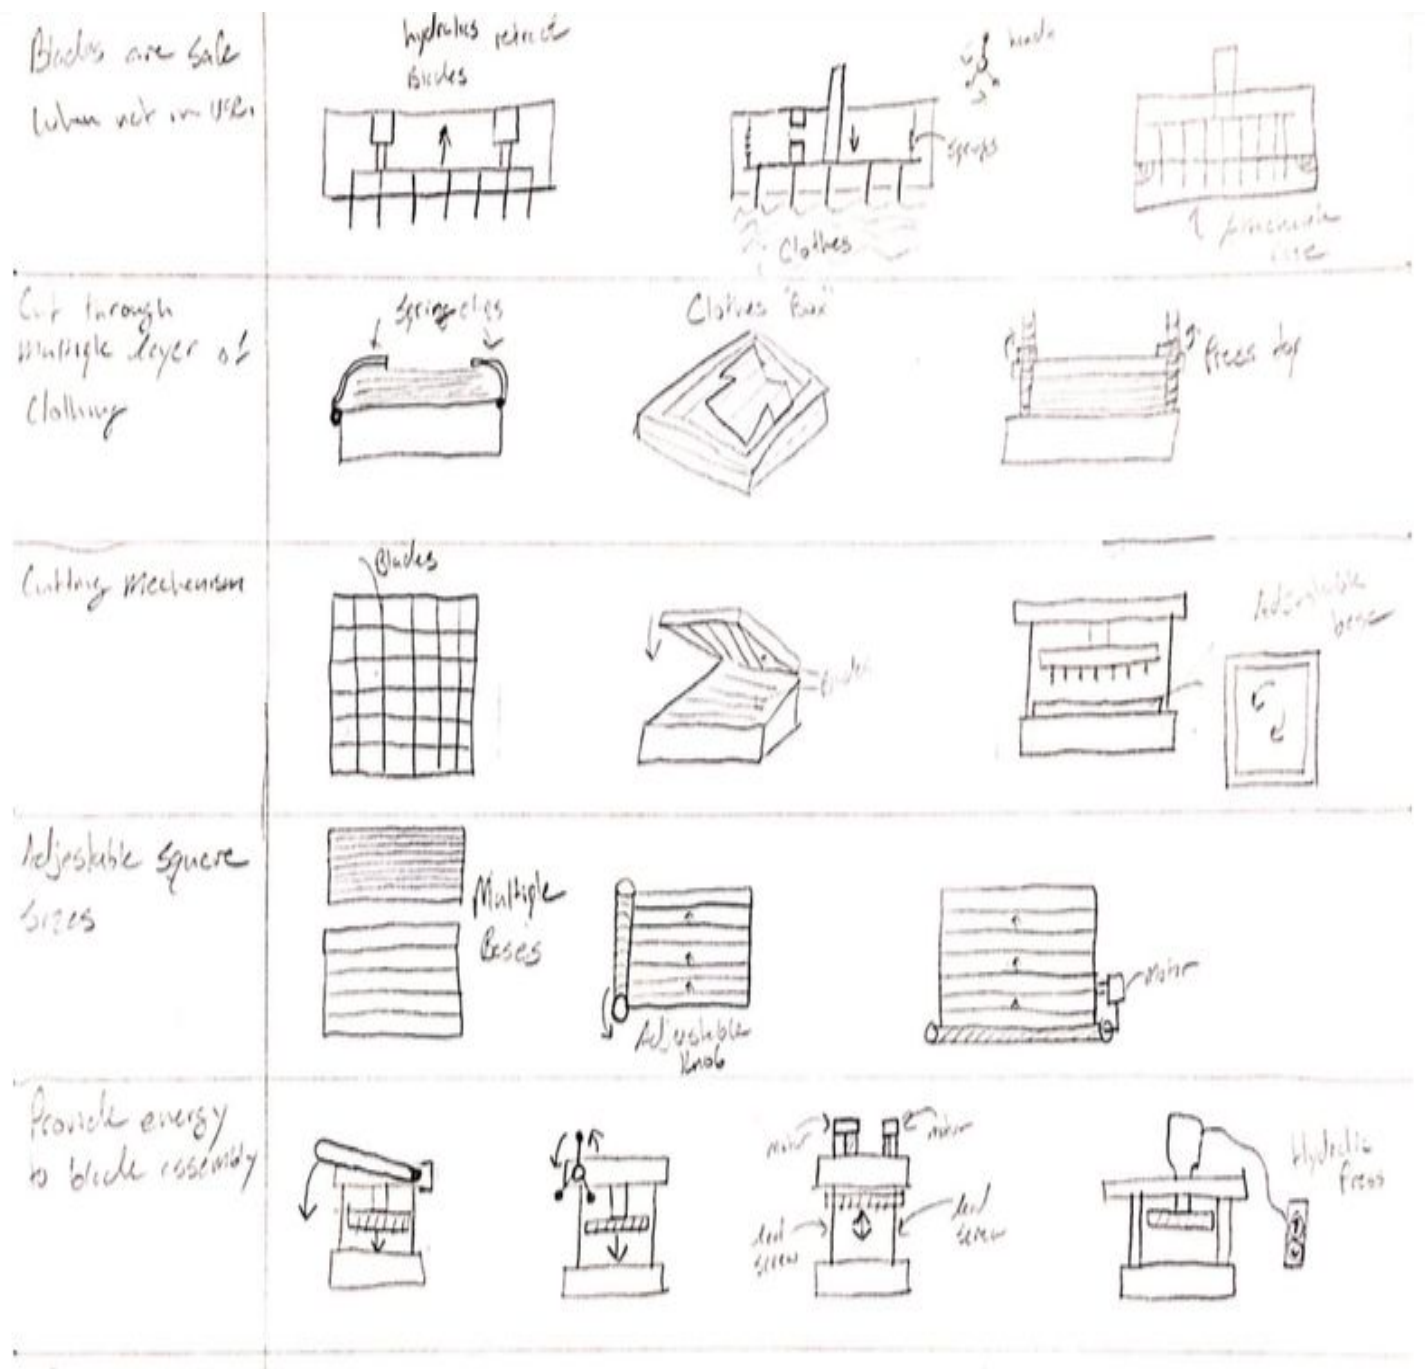 Blades are safe
when not in use.
hydralics retract
Blades
handle
springs
Clothes
rise
Cut through
Multiple layer of
Clothing
Spring clips
Clothes "Box"
Press top
Cutting Mechanism
Blades
Blades
Adjustable
base
Adjustable square
sizes
Multiple
Bases
Adjustable
Knob
Motor
Provide energy
to blade assembly
motor
motor
lead
screw
lead
screw
Hydralic
Press